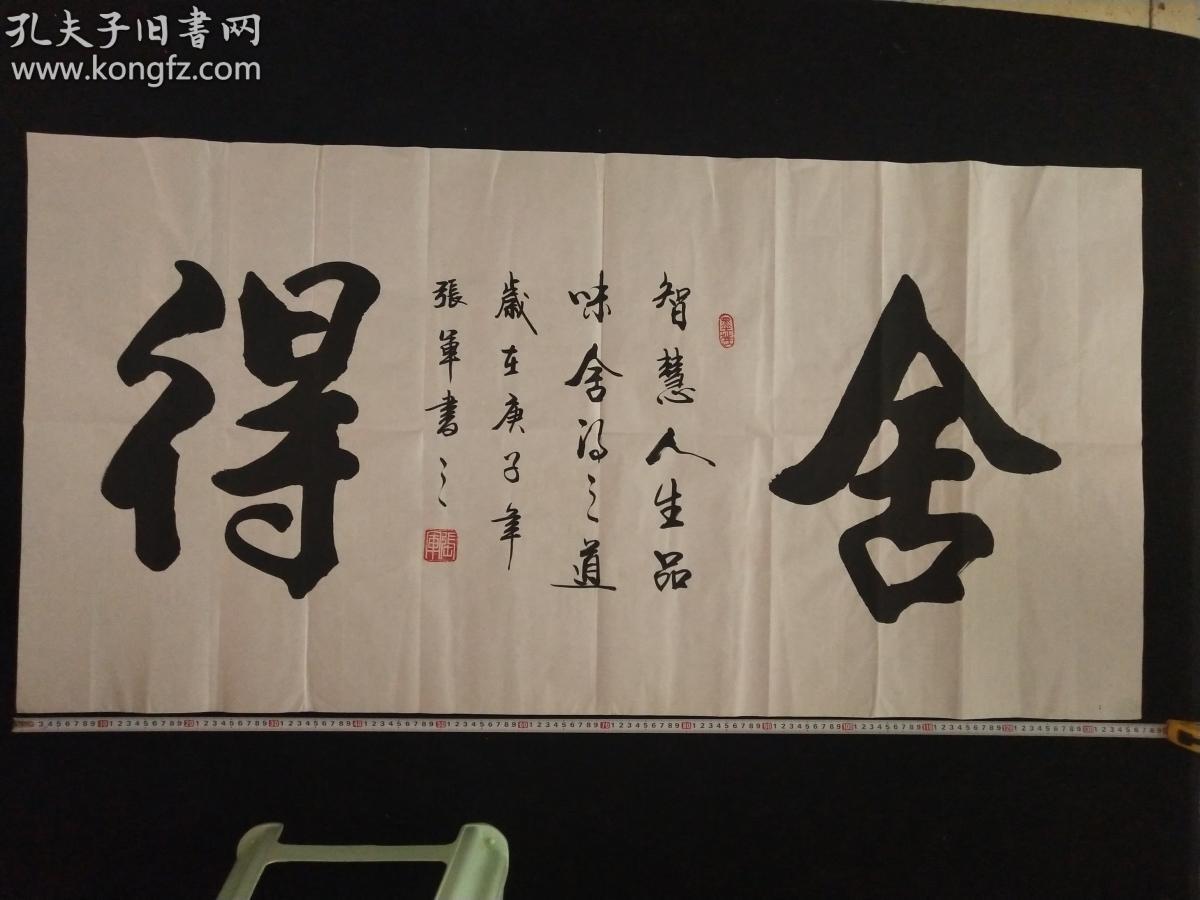 孔夫子旧書网
www.kongfz.com
舍得
智慧人生品
味舍得之道
歲在庚子年
張軍書之
張軍